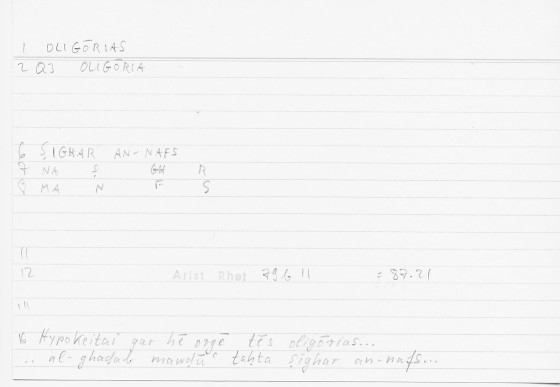 1 OLIGŌRIAS
2 Q3 OLIGŌRIA
6 ṢIGHAR AN-NAFS
7 NA Ṣ GH R
8 MA N F S
11
12 Arist Rhet 79b 11 = 87.21
14
16 Hypokeitai gar hē orgē tēs oligōrias...
.. al-ghaḍab mawḍūʿ taḥta ṣighar an-nafs...